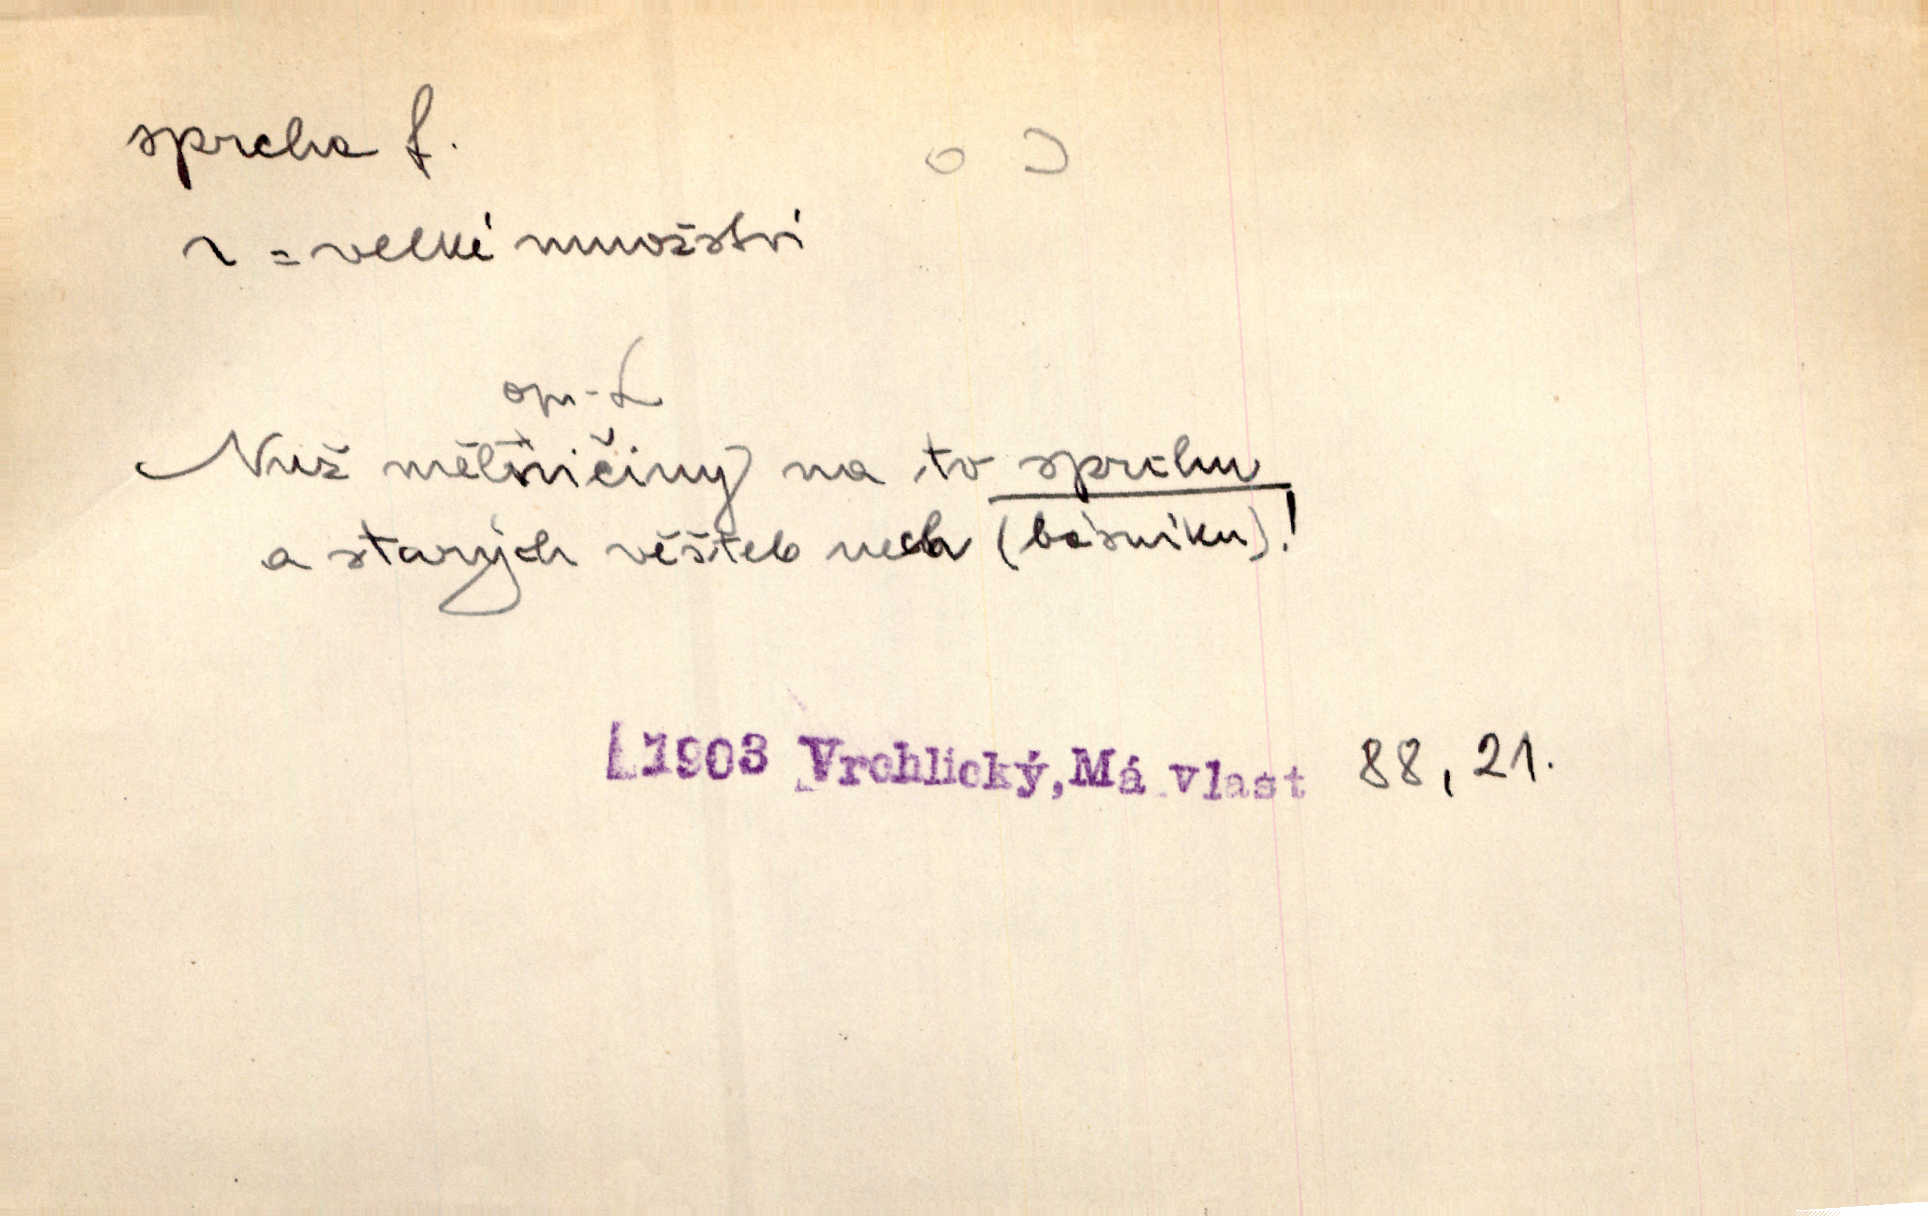 sprcha f.
~ = velké množství
opr.-L
Nuž mělničiny na to sprchu
a starých věšteb nech (básníku)!
L1903 Vrchlický, Má vlast 88, 21.